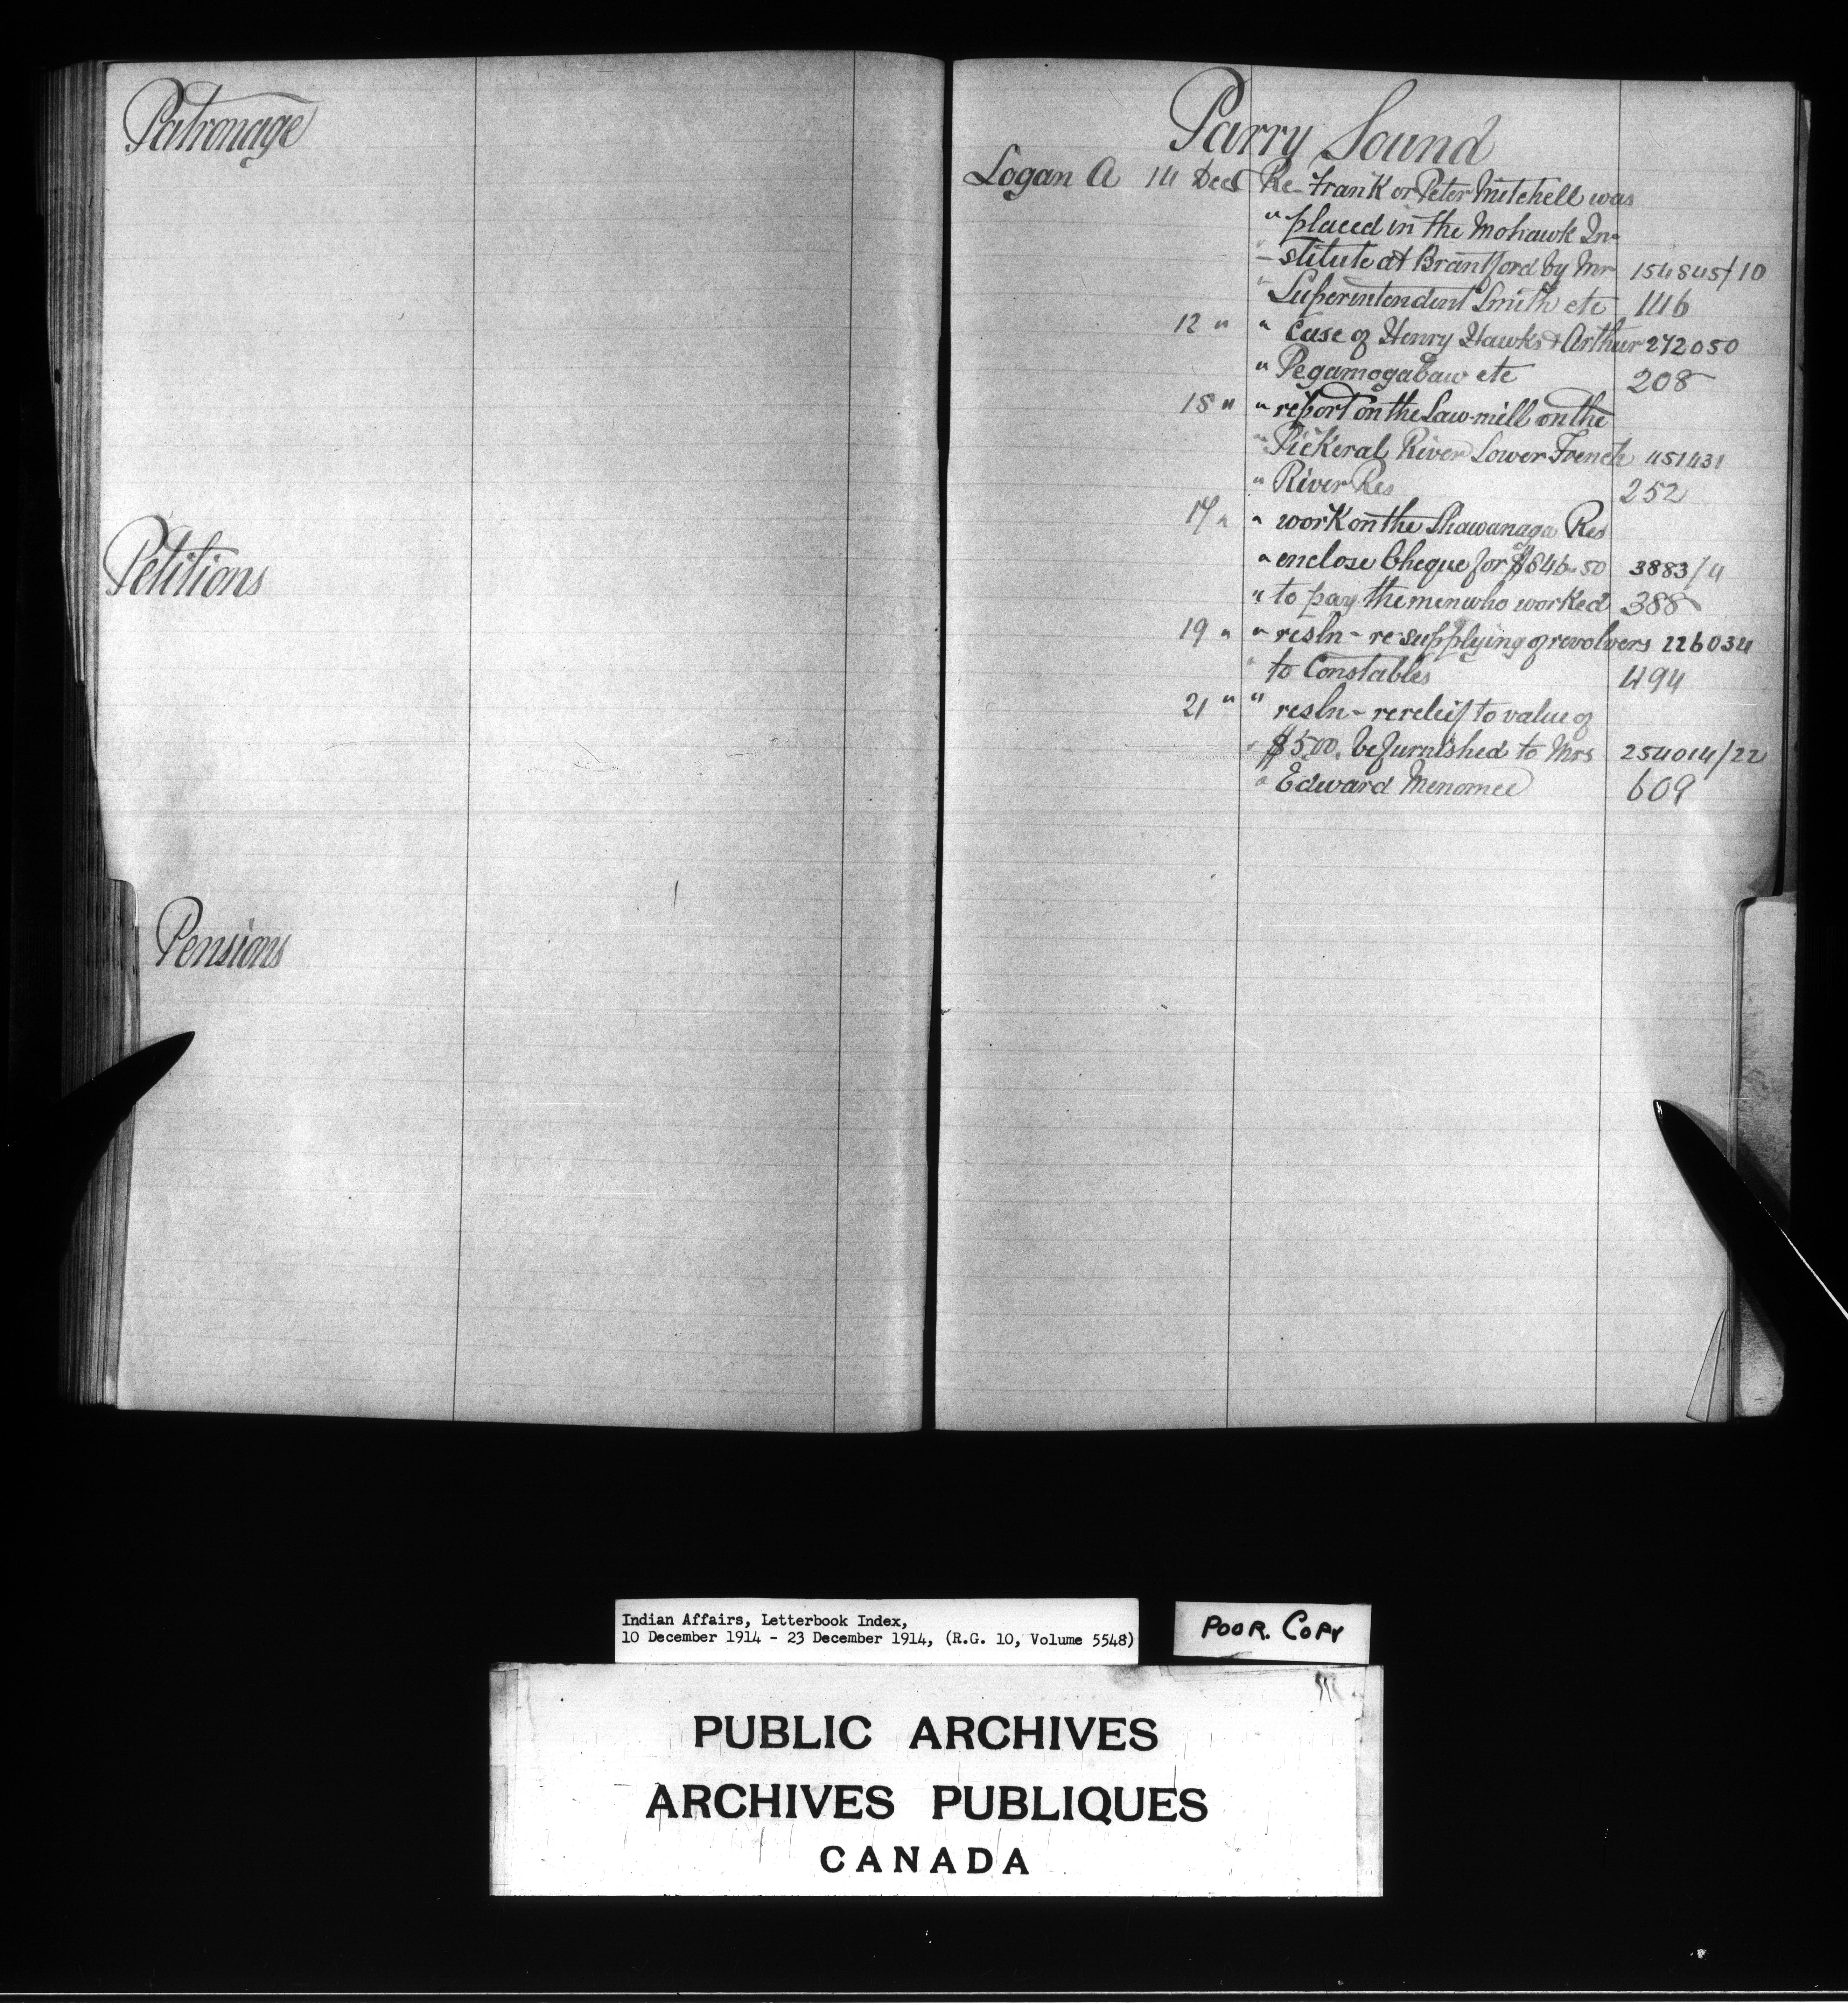 Patronage
Petitions
Pensions
Parry Sound
Logan A 14 Dec Re Frank or Peter Mitchell was
" placed in the Mohawk In-
- stitute at Brantford by Mr 154845/10
" Superintendent Smith etc 146
12 " " Case of Henry Hawks & Arthur 272050
" Pegamogabaw etc 208
15 " " report on the Saw-mill on the
" Pickeral River Lower French 451431
" River Res 252
17 " " work on the Shawanaga Res
" enclose Cheque for $646.50 3883/4
" to pay the men who worked 388
19 " " resln - re supplying of revolvers 226034
" to Constables 494
21 " " resln - re releif to value of
" $5.00. be furnished to Mrs 254014/22
" Edward Menomee 609
Indian Affairs, Letterbook Index,
10 December 1914 - 23 December 1914, (R.G. 10, Volume 5548)
POOR. COPY
PUBLIC ARCHIVES
ARCHIVES PUBLIQUES
CANADA